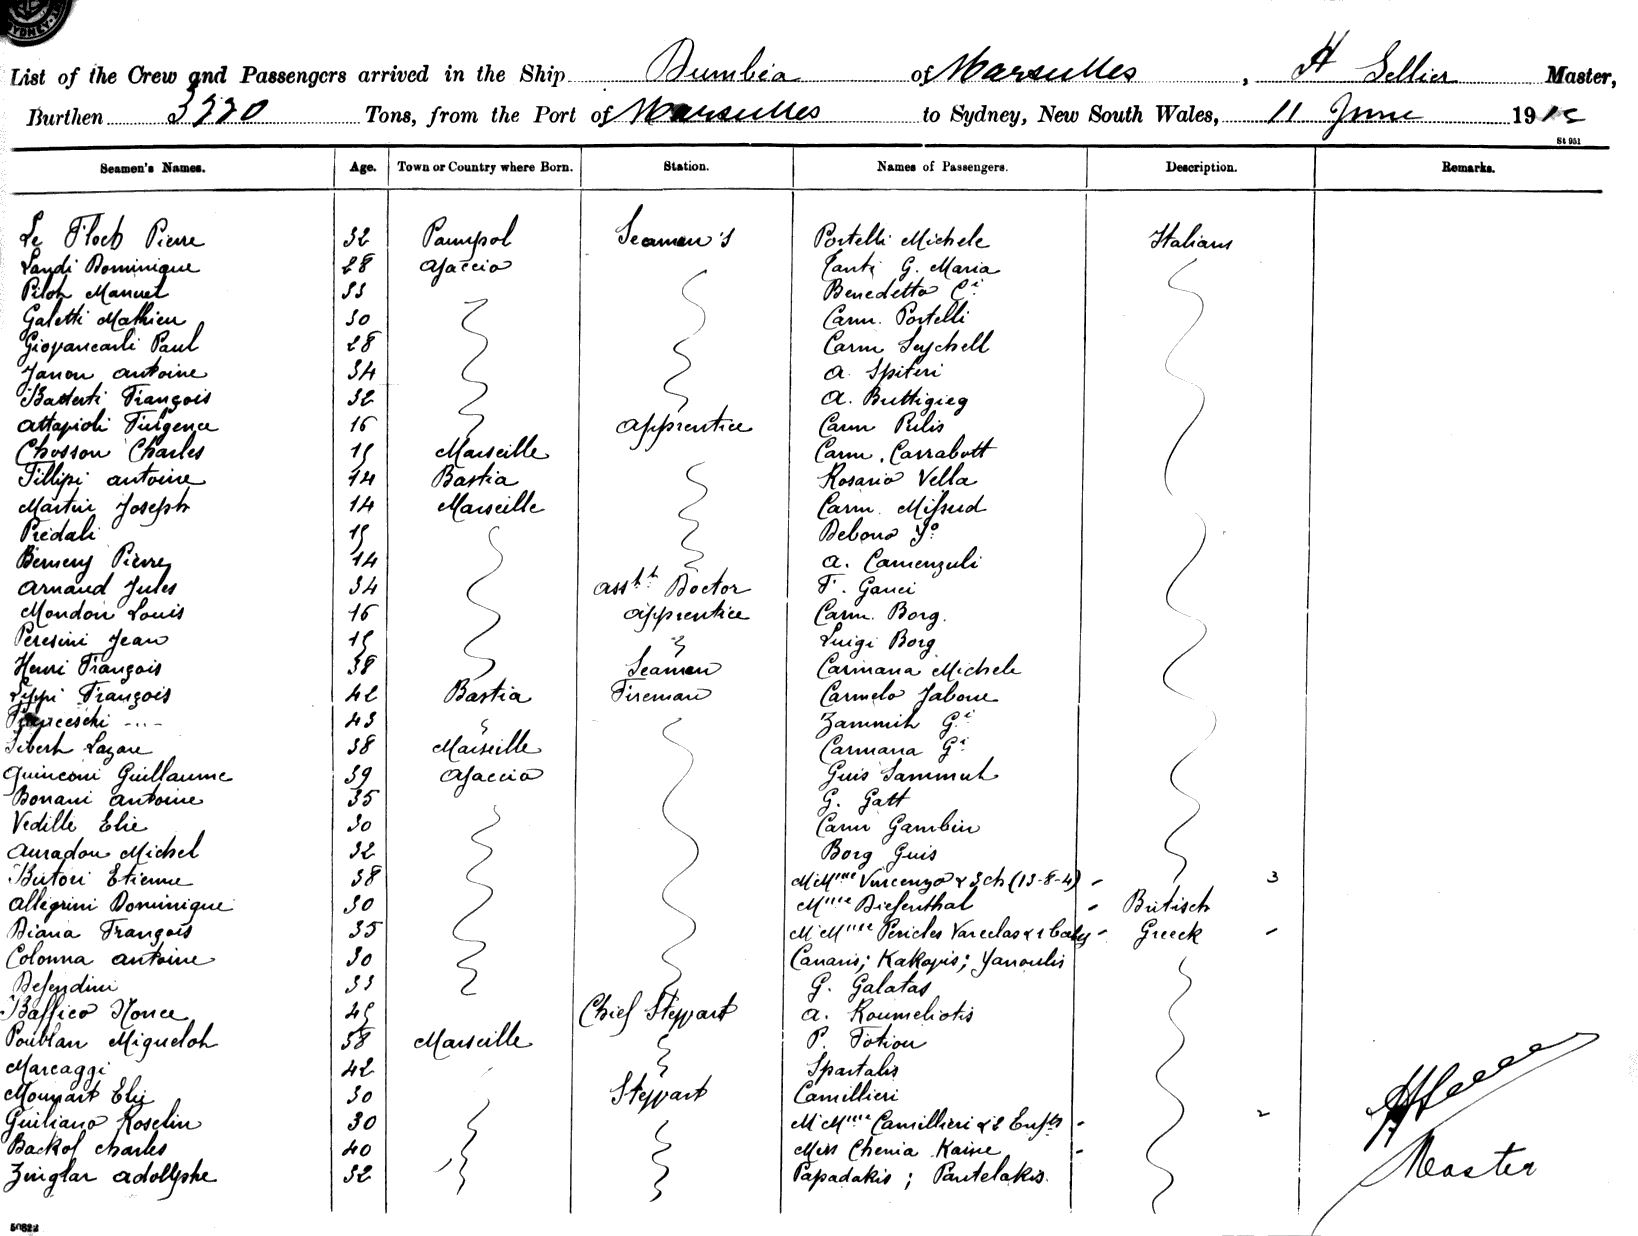 SYDNEY
List of the Crew and Passengers arrived in the Ship Dumbéa of Marseilles, H Sellier Master,
Burthen 3770 Tons, from the Port of Marseilles to Sydney, New South Wales, 11 June 191
St 951
Seamen's Names. Age. Town or Country where Born. Station. Names of Passengers. Description. Remarks.
Le Floch Pierre 32 Paimpol Seamen's Portelli Michele Italians
Landi Dominique 28 Ajaccio G. Maria
Piloh Manuel 33 Benedetto Ci
Galetti Mathieu 30 Carm. Portelli
Giovancarli Paul 28 Carm Seychell
Janon Antoine 34 A. Spiteri
Battesti François 32 A. Buttigieg
Fulgence 16 Apprentice Carm Pulis
Chosson Charles 15 Marseille Carm. Carrabott
Fillipi Antoine 14 Bastia Rosario Vella
Martin Joseph 14 Marseille Carm. Mifsud
Predali 15 Debono
Pierre 14 A. Camenzuli
Arnaud Jules 34 Asstt Doctor F. Gauci
Mondon Louis 16 Apprentice Carm. Borg.
Peresini Jean 15 Luigi Borg
Henri François 38 Seamen Carmana Michele
Lippi François 42 Bastia Fireman Carmelo Jabone
43 Zammit Gi
Sibert Lazare 38 Marseille Carmana Gi
Quinconi Guillaume 39 Ajaccio Guis Sammut
Bonani Antoine 35 G. Gatt
Vedille Elie 30 Carm Gambin
Auradou Michel 32 Borg Guis
Butori Etienne 38 M Mme Vincenzo & 3 ch (13-8-4) - 3
Allegrini Dominique 30 Mme Diefenthal - Britisch
Diana François 35 M Mme Pericles Vareclas & 1 baby - Greeck -
Colonna Antoine 30 Canaris; Kakopis; Yanoulis
Defendini 33 G. Galatas
Baffico Nonce 45 Chief Stewart A. Roumeliotis
Poublan Migueloh 58 Marseille P. Fotiou
Marcaggi 42 Spartalis
Elie 30 Stewart Camillieri
Guiliano Roselin 30 M Mme Camillieri & 2 Enfts - 2
Backof Charles 40 Miss Chenia Kaine -
Zinglar Adolphe 32 Papadakis; Pantelakis.
Master